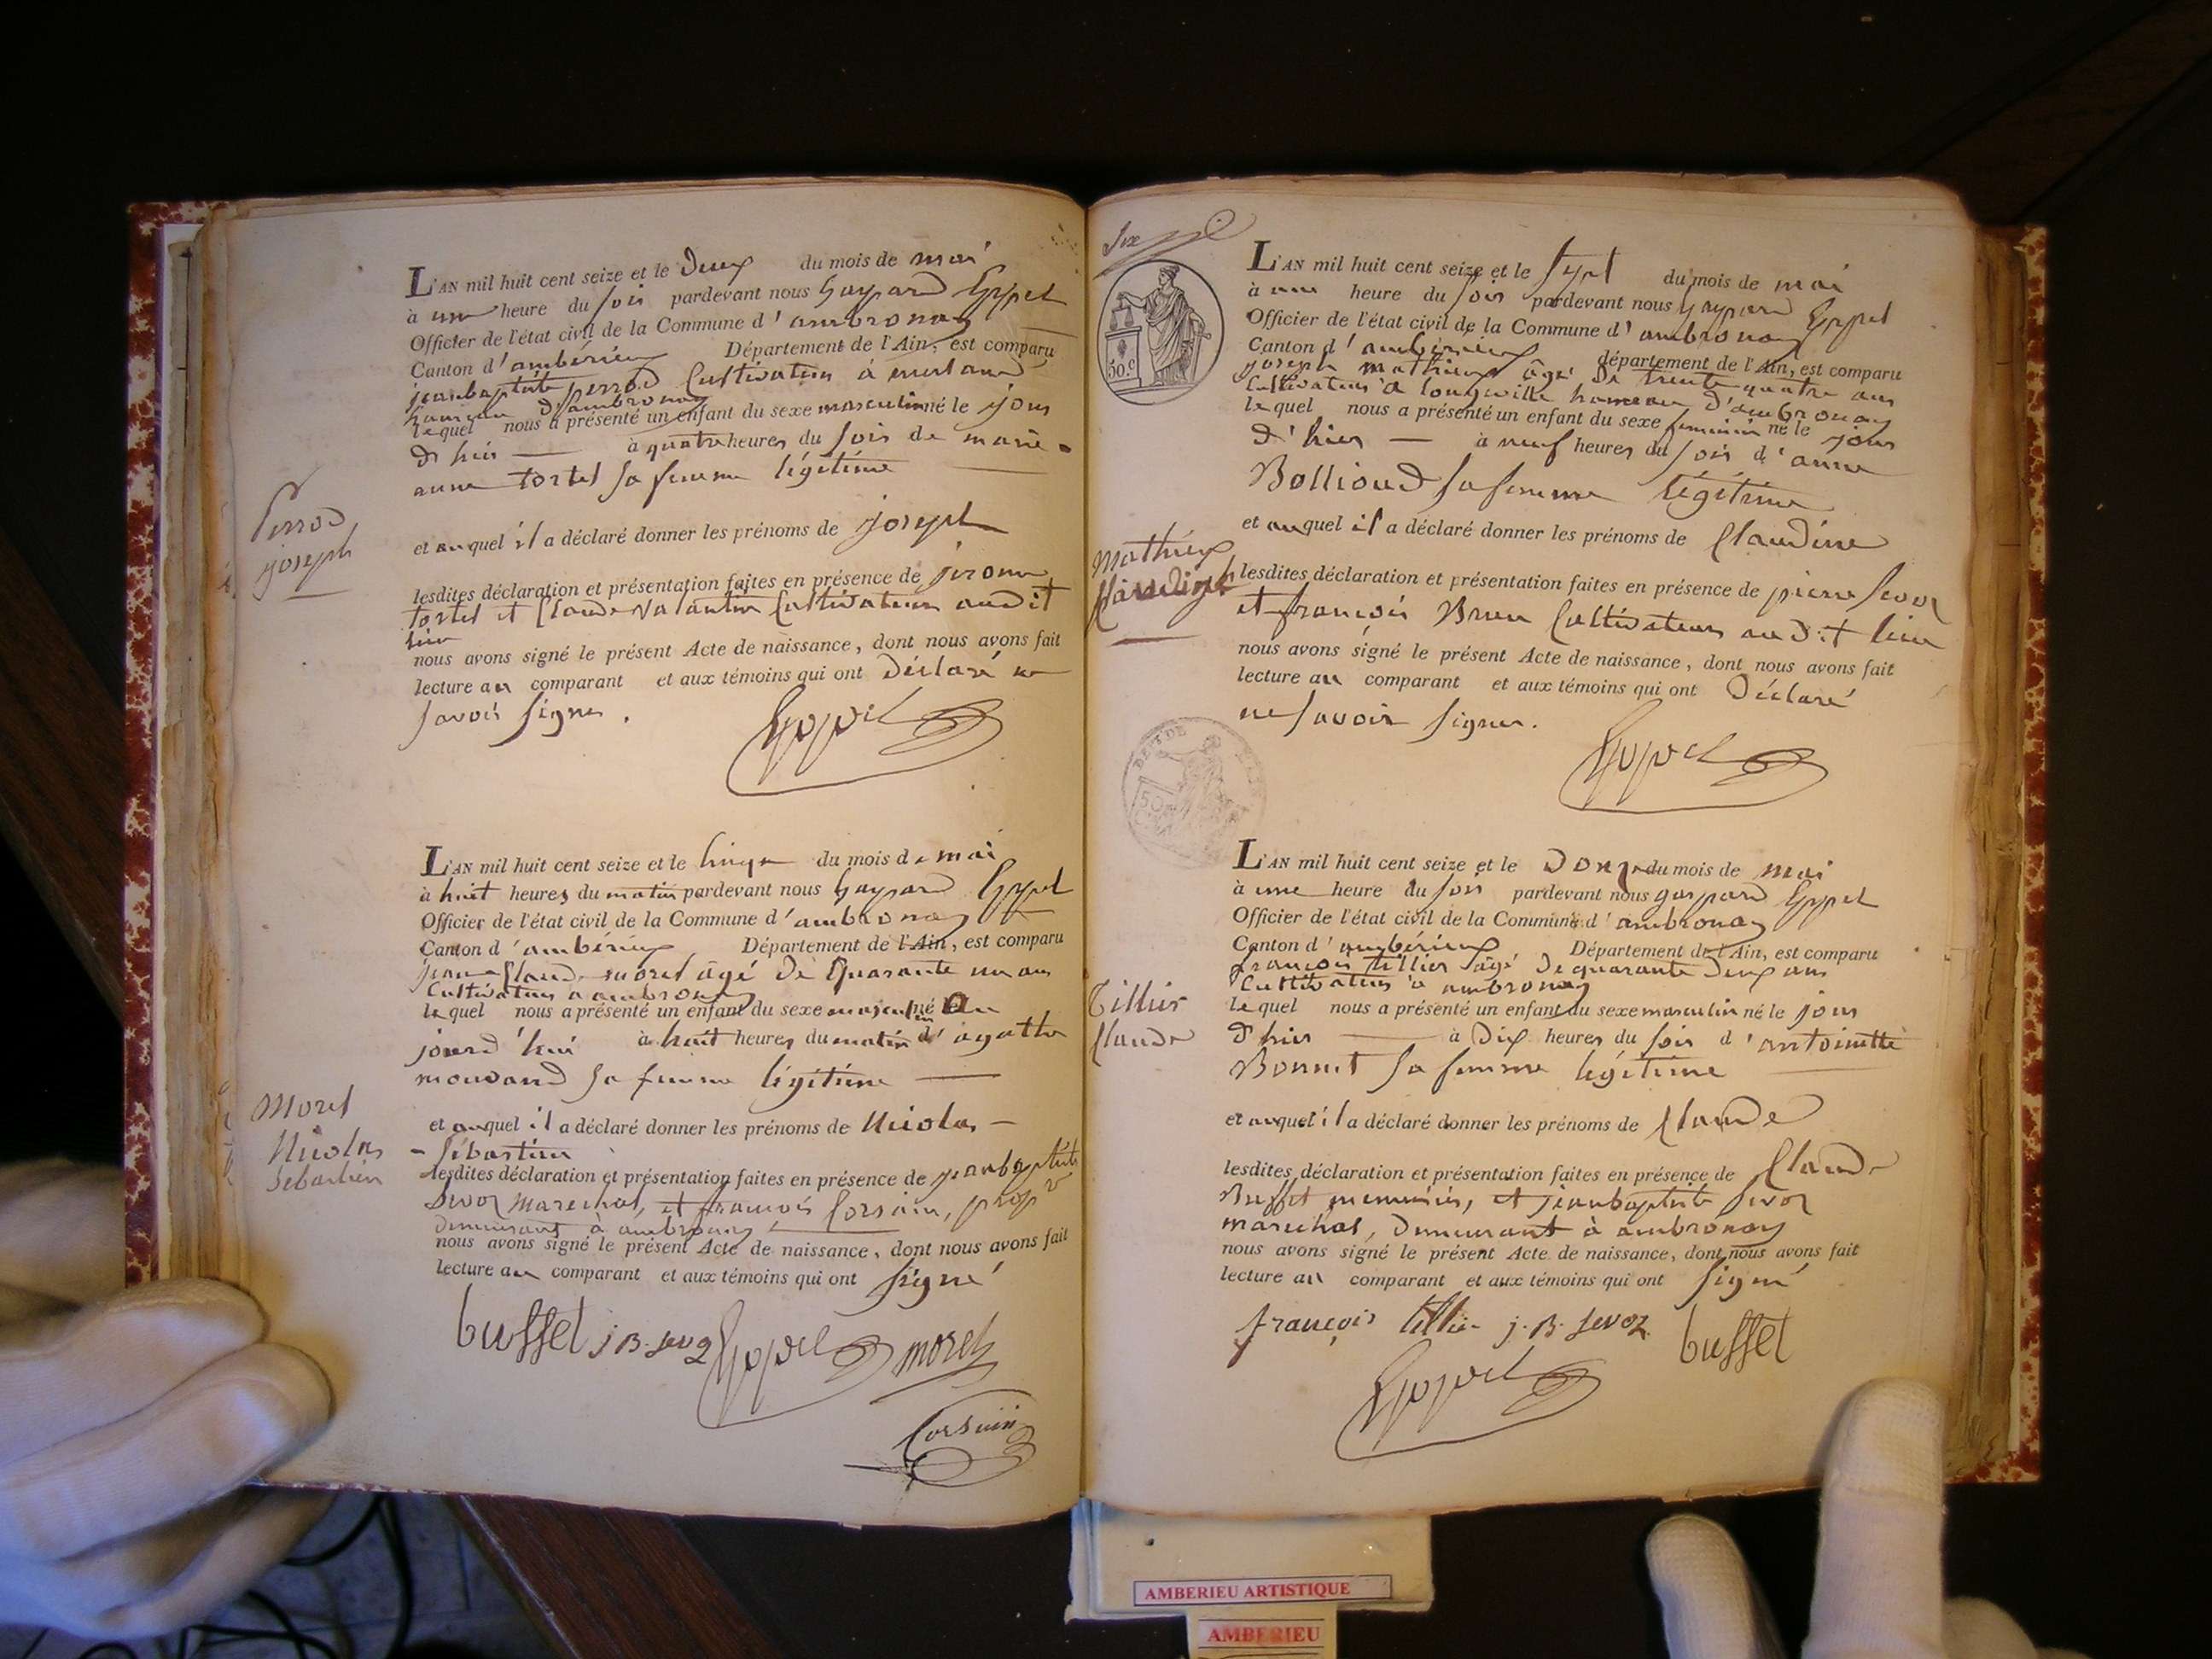 L'AN mil huit cent seize et le Deux du mois de mai
à une heure du soir pardevant nous gaspard Eppel
Officier de l'état civil de la Commune d'ambronay
Canton d'ambérieux Département de l'Ain, est comparu
jeanbaptiste perrod Cultivateur à merland
hameau d'ambronay
lequel nous a présenté un enfant du sexe masculin né le jour
d'hier à quatre heures du soir de marie-
anne tortel sa femme légitime
Perrod
joseph
et auquel il a déclaré donner les prénoms de joseph
lesdites déclaration et présentation faites en présence de jerome
tortel et Claude valantin Cultivateurs audit
lieu
nous avons signé le présent Acte de naissance, dont nous avons fait
lecture au comparant et aux témoins qui ont Déclaré ne
savoir signer.
Eppel
L'AN mil huit cent seize et le Cinq du mois de mai
à huit heures du matin pardevant nous gaspard Eppel
Officier de l'état civil de la Commune d'ambronay
Canton d'ambérieux Département de l'Ain, est comparu
jean Claude morel âgé de Quarante un ans
Cultivateur a ambronay
lequel nous a présenté un enfant du sexe masculin né Au
jourd'hui à huit heures du matin d'agathe
sa femme légitime
Morel
Nicolas
Sebastien
et auquel il a déclaré donner les prénoms de Nicolas -
- sébastien
lesdites déclaration et présentation faites en présence de jeanbaptiste
Sevoz marechal, et françois Corsain, propre
demeurant à ambronay
nous avons signé le présent Acte de naissance, dont nous avons fait
lecture au comparant et aux témoins qui ont signé
buffet j B. sevoz Eppel morel
Corsain
six
L'AN mil huit cent seize et le sept du mois de mai
à une heure du soir pardevant nous gaspard Eppel
Officier de l'état civil de la Commune d'ambronay
50.c
Canton d'ambérieux département de l'Ain, est comparu
joseph mathieux âgé de trente quatre ans
Cultivateur à longeville hameau d'ambronay
lequel nous a présenté un enfant du sexe feminin né le jour
d'hier à neuf heures du soir d'anne
Bollioud sa femme légitime
et auquel il a déclaré donner les prénoms de Claudine
Mathieux
lesdites déclaration et présentation faites en présence de pierre Sevoz
et françois Brun Cultivateurs audit lieu
nous avons signé le présent Acte de naissance, dont nous avons fait
lecture au comparant et aux témoins qui ont Déclaré
ne savoir signer.
Eppel
L'AN mil huit cent seize et le Donze du mois de mai
à une heure du soir pardevant nous gaspard Eppel
Officier de l'état civil de la Commune d'ambronay
Canton d'ambérieux Département de l'Ain, est comparu
françois tillier âgé de quarante deux ans
Cultivateur à ambronay
Tillier
Claude
lequel nous a présenté un enfant du sexe masculin né le jour
d'hier à Dix heures du soir d'antoinette
Bonnet sa femme légitime
et auquel il a déclaré donner les prénoms de Claude
lesdites déclaration et présentation faites en présence de Claude
Buffet menuisier, et jeanbaptiste Sevoz
marechal, demeurant à ambronay
nous avons signé le présent Acte de naissance, dont nous avons fait
lecture au comparant et aux témoins qui ont signé
françois tillier j. B. sevoz buffet
Eppel
AMBERIEU ARTISTIQUE
AMBERIEU